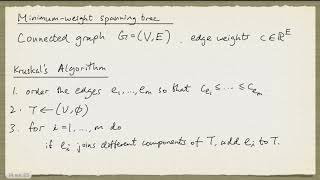 Minimum-weight spanning tree
Connected graph G=(V,E), edge weights c∈ℝ^E
Kruskal's Algorithm
1. order the edges e₁,...,eₘ so that c_{e₁} ≤ ... ≤ c_{eₘ}
2. T ← (V, ∅)
3. for i=1,...,m do
if eᵢ joins different components of T, add eᵢ to T.